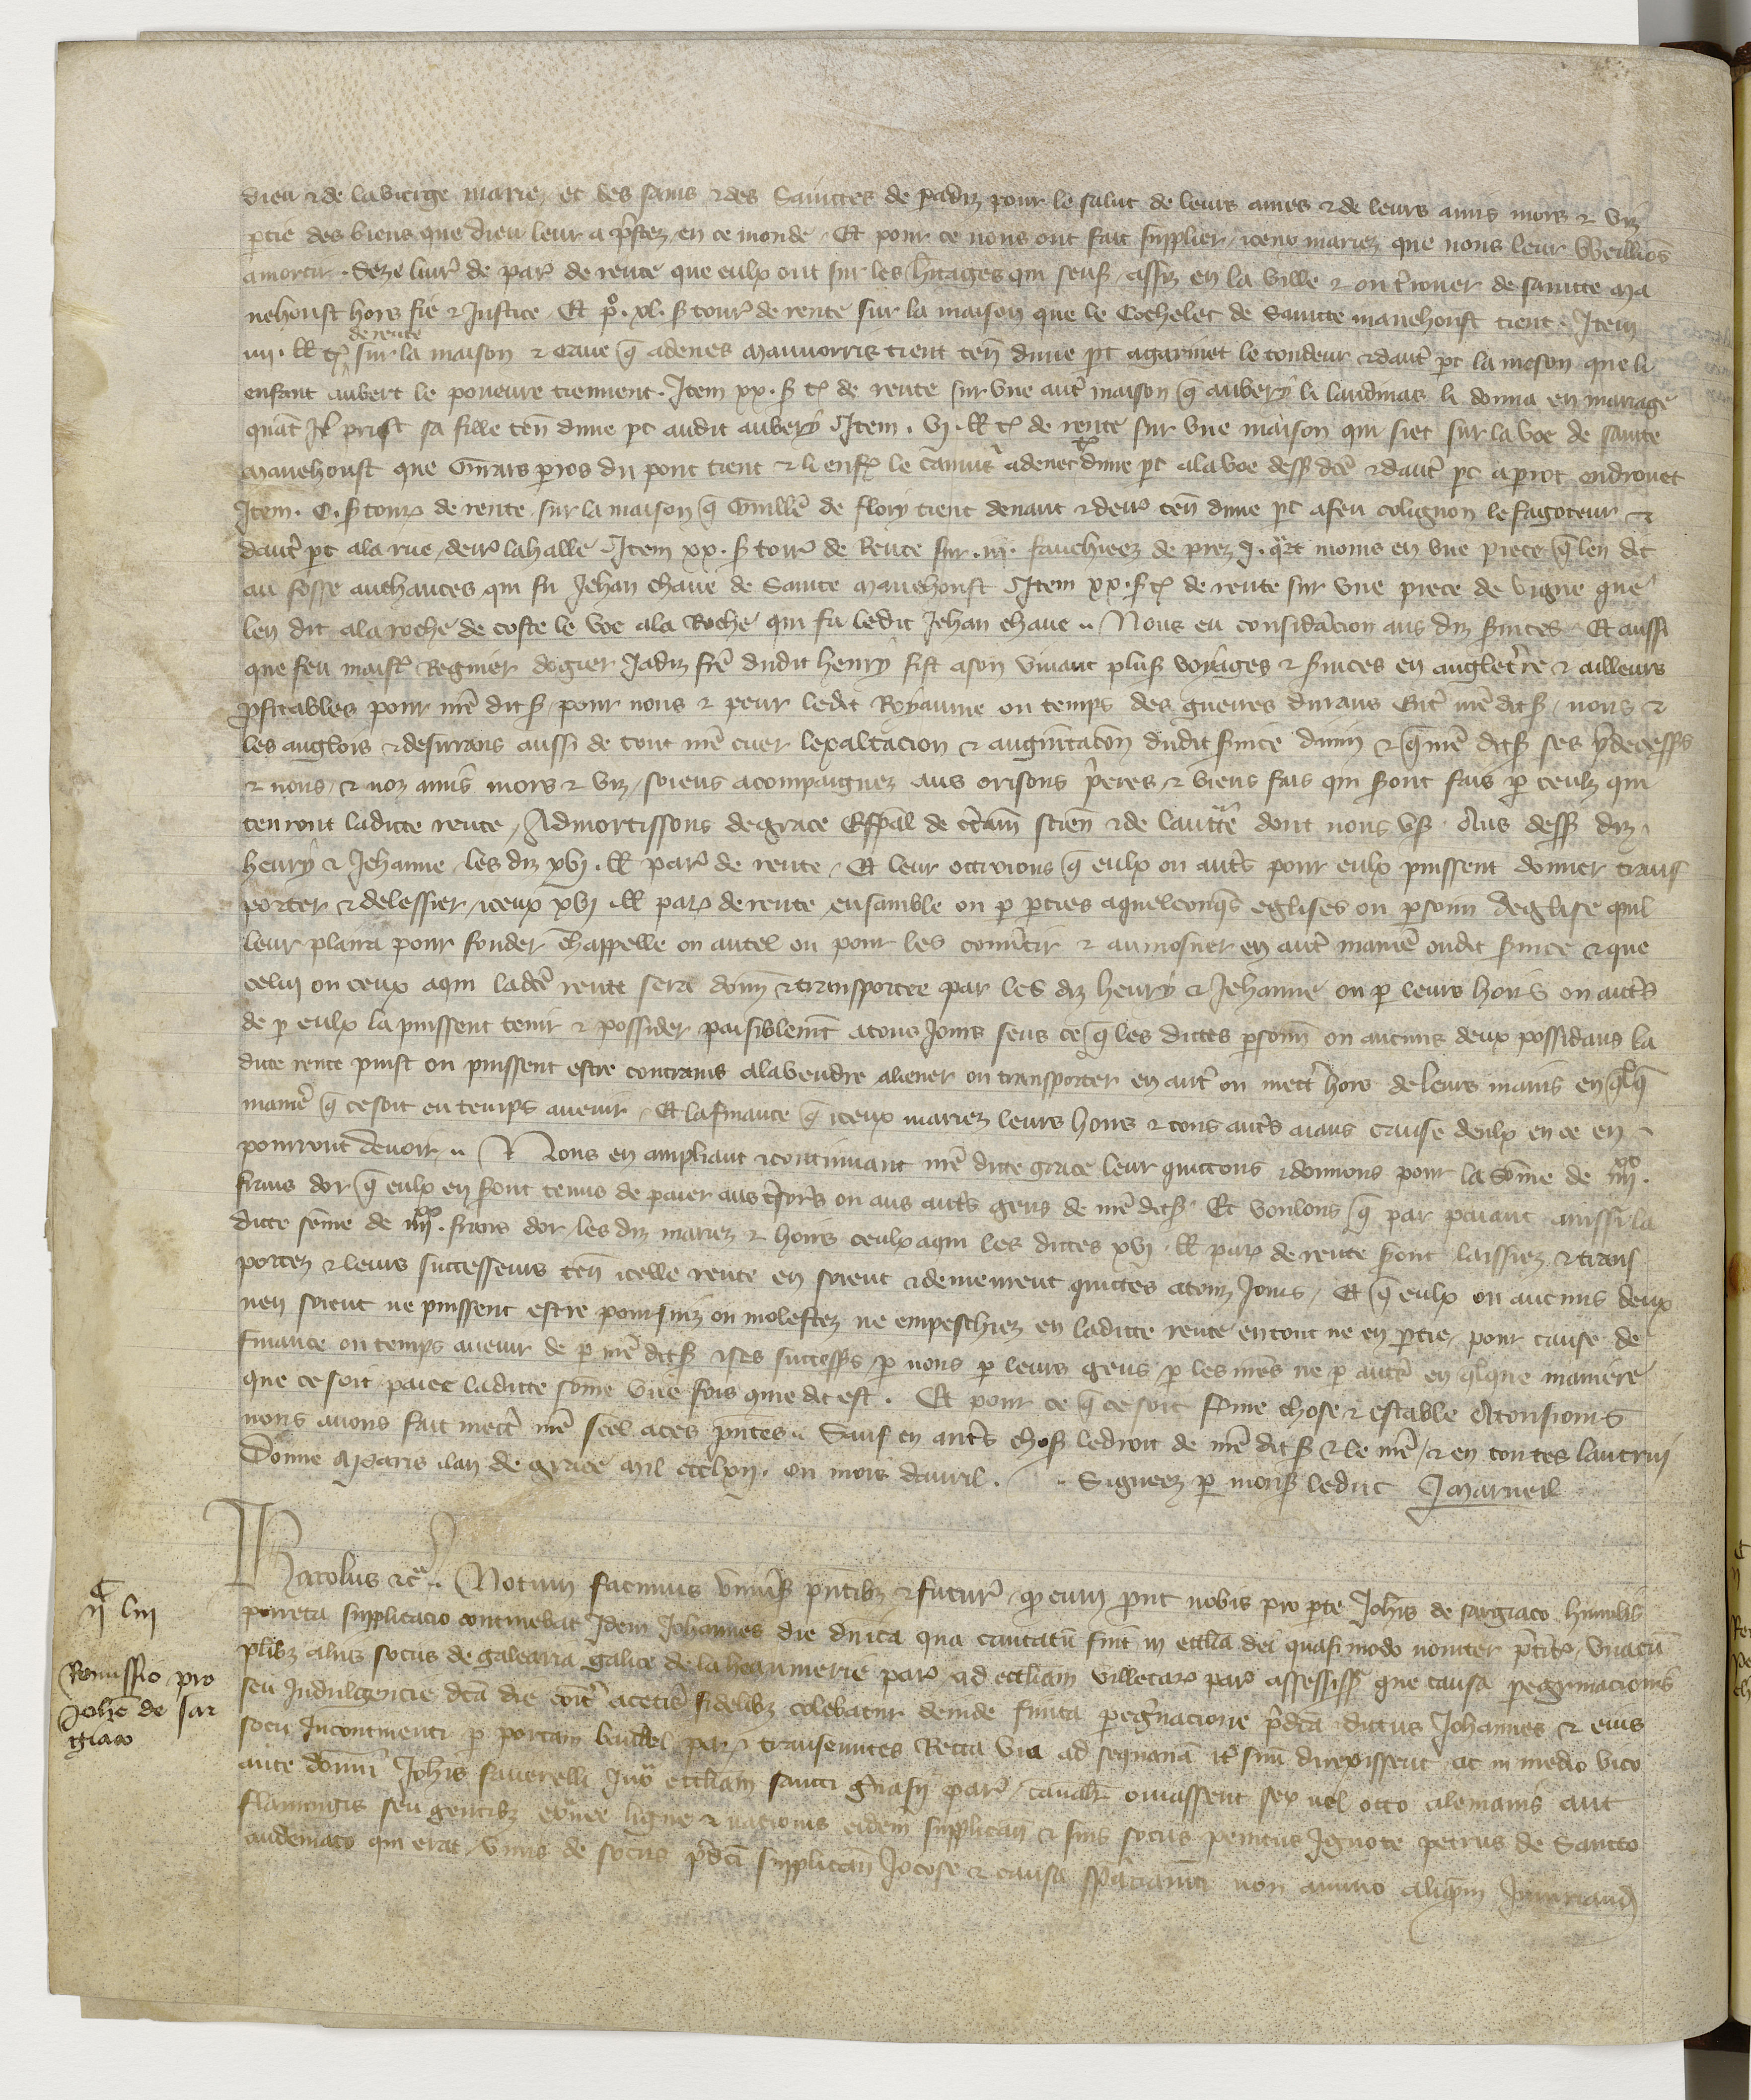 dieu & de la vierge marie et des sains & des Sainctes de padiz pour le salut de leurs ames & de leurs amis mors & viz
ptie des biens que dieu leur a prestez en ce monde. Et pour ce nous ont fait supplier iceux mariez que nous leur veillions
amortir. Seze livr de par de rente que eulx ont sur les hitages qui sens assiz en la ville & ou tirouer de saincte ma
nehoust hors fie & Justice. Et po. xl. s tour de rente sur la maison que le Cochelet de Saincte manehoust tient. Item
iiii. ll t de rente sur la maison & cave q adenes mauvorris tient ten dune pt agarinet le tondeur & daut pt la meson que li
enfant aubert le poneure tiennent. Item xx. s t de rente sur une aut maison q aubery li laudinas li donna en mariage
quat Il prist sa fille ten dune pt audit aubery. Item. vi. ll t de rente sur une maison qui siet sur la voe de saincte
manehoust que Girars pros du pont tient & li enf le camus adenet dune pt ala voe dess dce & daut pt a prot ondrouet
Item. C. s tour de rente sur la maison q Guille de flory tient devant & der ten dune pt a feu colignon le fagoteur &
daut pt ala rue der la halle. Item xx. s tour de Rente sur. iii. fauchieez de prez i. qrt moins en une piece q len dit
au fosse auchances qui fu Jehan chave de Saincte manehoust. Item xx. s t de rente sur une piece de vigne que
len dit ala roche de coste le voe ala Roche qui fu ledit Jehan chave.. Nous eu consideracion aus diz services. Et aussi
que feu maist Regnier dogier Jadiz fre dudit henry fist a son vivant plus voyages & svices en angleterre & ailleurs
pfitables pour me dit s pour nous & pour ledit Royaume ou temps des guerres durans ent me dit s nous &
les anglois & desirrans aussi de tout me cuer lexaltacion & augmtacon dudit svice divin & q me dit s ses predecesss
& nous & noz amis mors & viz soiens acompaignez aus orisons prieres & biens fais qui sont fais p ceulz qui
tenront ladicte rente, Admortissons de grace Espal de ctaine scien & de lauttte dont nous us. Aus dess diz
henry & Jehanne les diz xvi. ll par de rente. Et leur octroions q eulx ou auts pour eulx puissent donner trans
porter & delessier iceux xvi ll par de rente ensamble ou p pties aquelconqs eglises ou psonn deglise quil
leur plaira pour fonder chappelle ou autel ou pour les convtir & aumosner en aut manie oudit svice & que
celui ou ceux aqui ladce rente sera donn & transportee par les diz henry & Jehanne ou p leurs hoirs ou auts
de p eulx la puissent tenir & possider paisiblemt atous Jours sens ce q les dictes psonn ou aucuns deux possidans la
dicte rente puist ou puissent estre contrains ala vendre aliener ou transporter en aut ou mect hors de leurs mains en qlq
manie q ce soit en temps avenir. Et la finance q iceux mariez leurs hoirs & tous auts aians cause deulx en ce en
pourront devoir.. Nous en ampliant & continuant me dicte grace leur quictons & donnons pour la some de iiiixx.
frans dor q eulx en sont tenus de paier aus tsors ou aus auts gens de me dit s. Et voulons q par paiant aussi la
dicte some de iiiixx. frans dor les diz mariez & hoirs ceulx aqui les dictes xvi ll par de rente sont laissiez & trans
portez & leurs successeurs ten icelle rente en soient & demeurent quictes atouz Jours, Et q eulx ou aucuns deux
nen soient ne puissent estre poursuiz ou molestez ne empeschiez en ladicte rente en tout ne en ptie pour cause de
finance ou temps avenir de p me dit s & ses successs p nous p leurs gens p les nres ne p autre en qlque maniere
que ce soit paiee ladicte some une fois come dit est. Et pour ce q ce soit ferme chose & estable Atousiours
nous avons fait mect me scel aces pntes.. Sauf en auts chos le droit de me dit s & le me & en toutes lautrui
Donne a Paris lan de grace mil ccclxii. ou mois davril. .. Signeez p mons le duc J marueil
Karolus &ca.. Notum facimus univs pntibz & futur qd cum pout nobis pro pte Johis de sargiaco humilit
porrecta supplicacio continebat Idem Johannes die dnica qua cantatu fuit in ecclia dei quasi modo noviter ptito, unacu
plibz aliis sociis de galearia galice de la heaumerie par ad eccliam villetar par assessiss que causa peregrinacionis
seu Indulgencie dca die coit acetis fidelibz colebatur deinde finita peregnacione pdca dictus Johannes & eius
socii Incontinenti p portam baudel par transeuntes Recta via ad sequana it suu direxissent ac in medio vico
ante domu Johis saverelli Iux eccliam sancti Gvasii par, cavalc obviassent sex vel octo alemanis aut
flamingis seu gentibz exnee ligue & nacionis eidem supplican & suis sociis penitus Ignote petrus de Sancto
audemaro qui erat unus de sociis pdci supplican Jocose & causa spaciamti non animo aliqm Iniuriand
iic liii
Remissio pro
Johe de sar
giaco